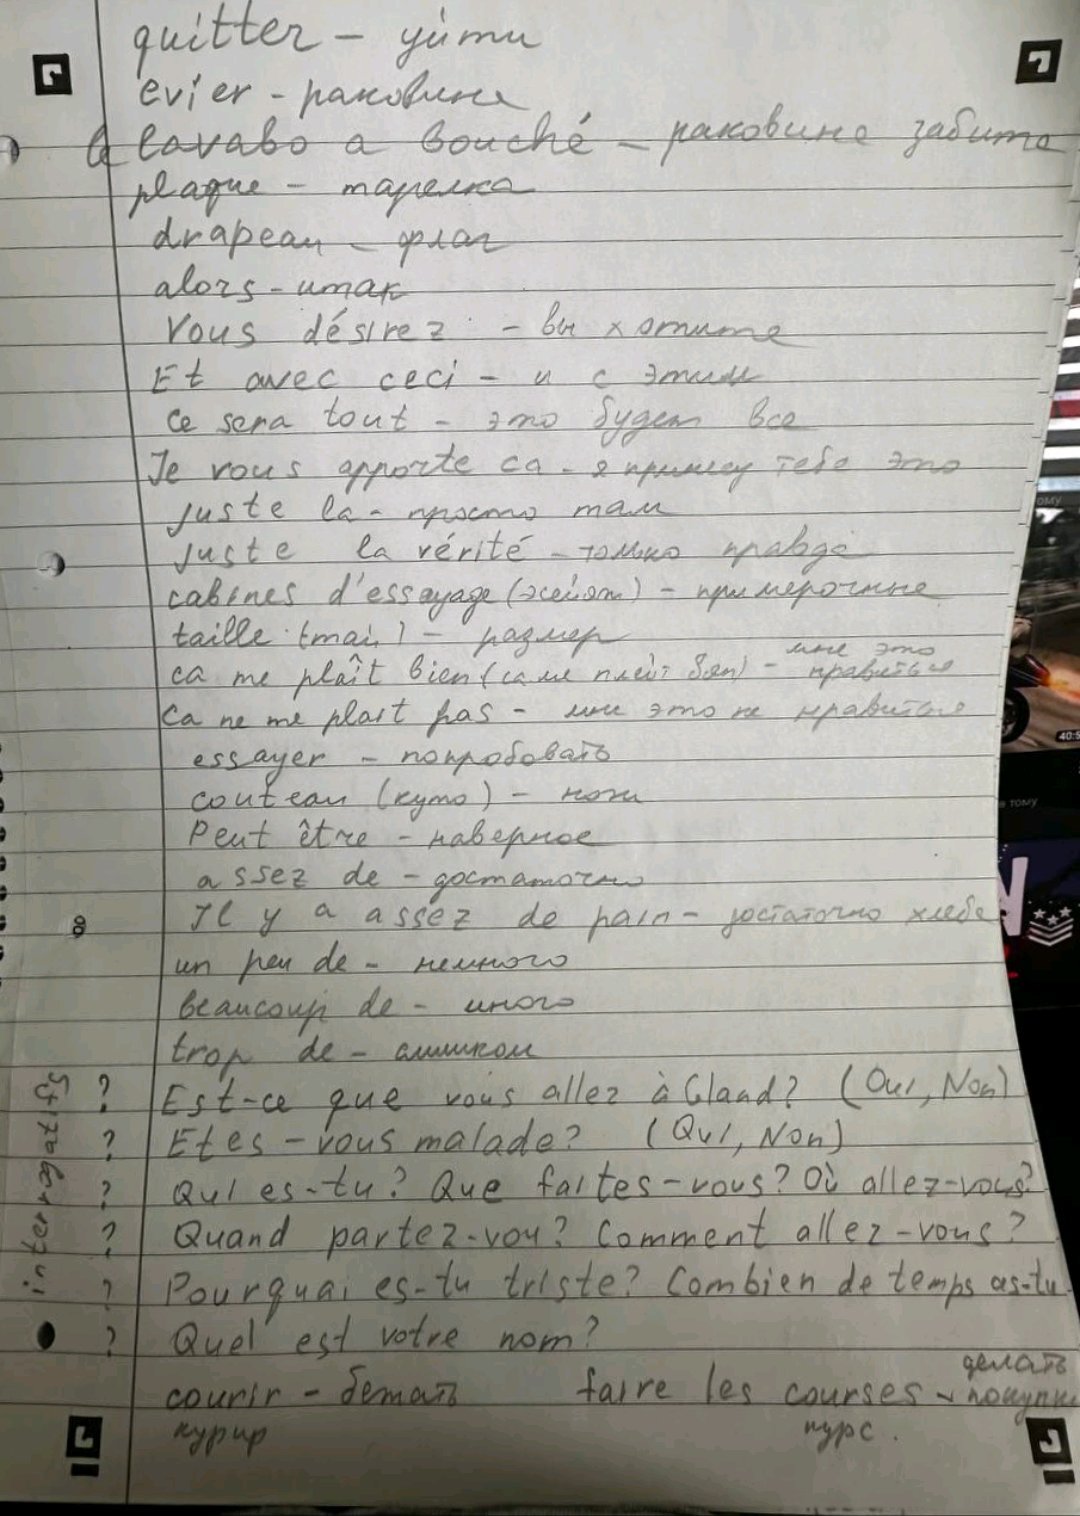 quitter - уйти
evier - раковина
le lavabo a bouché - раковина забита
plaque - тарелка
drapeau - флаг
alors - итак
Vous désirez - вы хотите
Et avec ceci - и с этим
Ce sera tout - это будет все
Je vous apporte ca - я принесу тебе это
juste la - просто там
juste la vérité - только правда
cabines d'essayage (эсейяж) - примерочные
taille (тай) - размер
ca me plaît bien (са ме плейт бян) - мне это нравиться
Ca ne me plait pas - мне это не нравиться
essayer - попробовать
couteau (куто) - нож
Peut être - наверное
assez de - достаточно
Il y a assez de pain - достаточно хлеба
un peu de - немного
beaucoup de - много
trop de - слишком
interrogatifs
? Est-ce que vous allez à Gland? (Oui, Non)
? Etes-vous malade? (Oui, Non)
? Qui es-tu? Que faites-vous? Où allez-vous?
? Quand partez-vou? Comment allez-vous?
? Pourquai es-tu triste? Combien de temps as-tu
? Quel est votre nom?
courir - бегать faire les courses - делать покупки
курир курс.
40:5